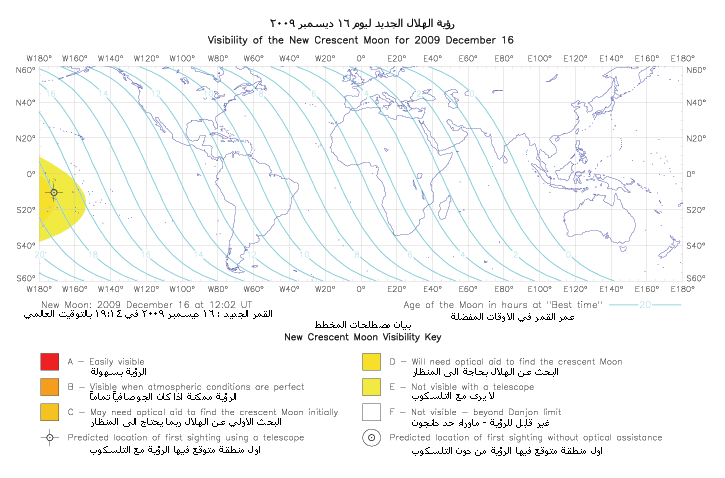 رؤية الهلال الجديد ليوم ١٦ ديسمبر ٢٠٠٩
Visibility of the New Crescent Moon for 2009 December 16
W180° W160° W140° W120° W100° W80° W60° W40° W20° 0° E20° E40° E60° E80° E100° E120° E140° E160° E180°
N60° N60°
N40° N40°
N20° N20°
0° 0°
S20° S20°
S40° S40°
S60° S60°
W180° W160° W140° W120° W100° W80° W60° W40° W20° 0° E20° E40° E60° E80° E100° E120° E140° E160° E180°
New Moon: 2009 December 16 at 12:02 UT
Age of the Moon in hours at "Best time" 20
القمر الجديد : ١٦ ديسمبر ٢٠٠٩ في ١٩:١٤ بالتوقيت العالمي
عمر القمر في الاوقات المفضلة
بيان مصطلحات المخطط
New Crescent Moon Visibility Key
A – Easily visible
الرؤية بسهولة
B – Visible when atmospheric conditions are perfect
الرؤية ممكنة اذا كان الجو صافياً تماماً
C – May need optical aid to find the crescent Moon initially
البحث الاولي عن الهلال ربما يحتاج الى المنظار
Predicted location of first sighting using a telescope
اول منطقة متوقع فيها الرؤية مع التلسكوب
D – Will need optical aid to find the crescent Moon
البحث عن الهلال بحاجة الى المنظار
E – Not visible with a telescope
لا يرى مع التلسكوب
F – Not visible – beyond Danjon limit
غير قابل للرؤية - ماوراء حد دانجون
Predicted location of first sighting without optical assistance
اول منطقة متوقع فيها الرؤية من دون التلسكوب